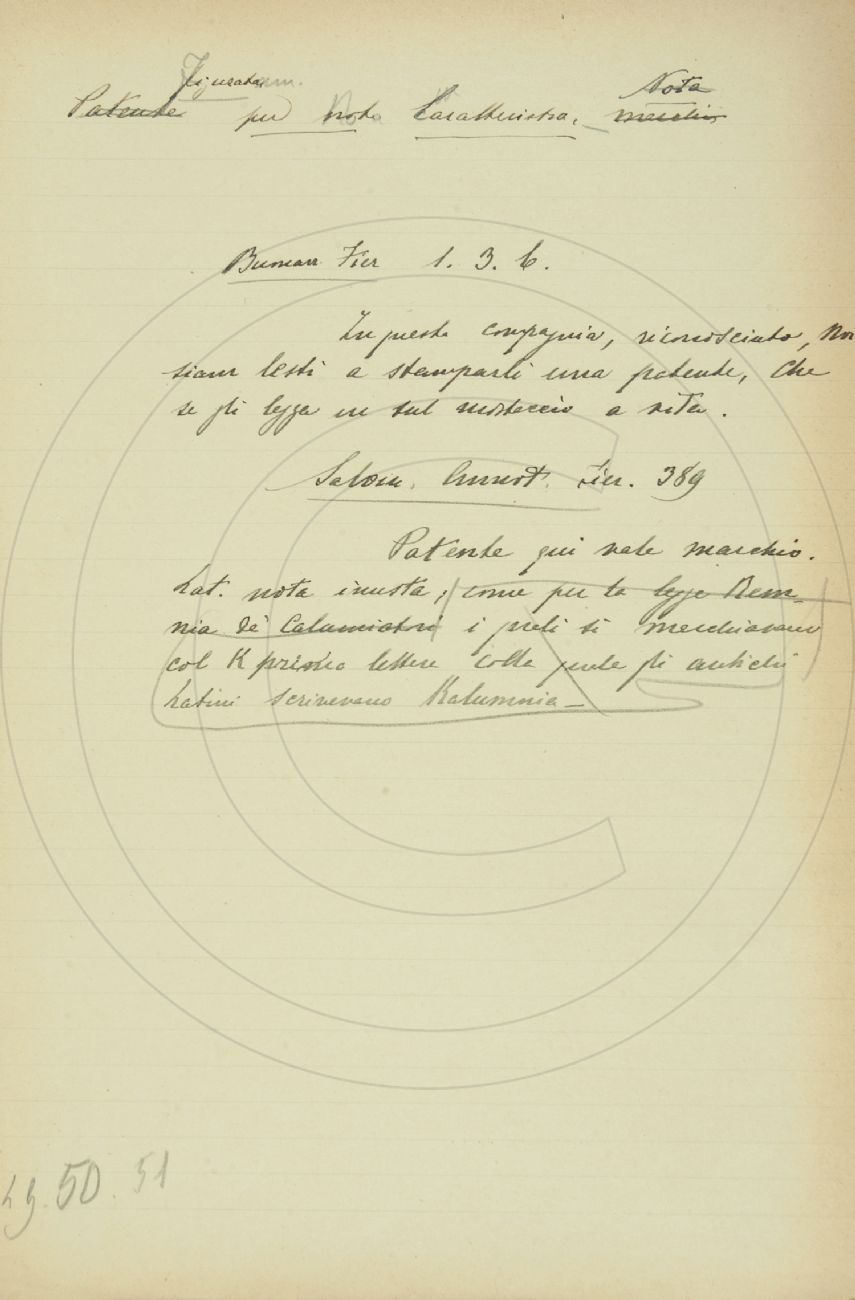 Figuratam. Nota
Patente per nota Caratteristica, – marchio
Buonarr Fier 1. 3. 6.
In questa compagnia, riconosciuto, Noi
siam lesti a stamparli una patente, che
se gli legga in sul mostaccio a vita.
Salvin. Annot. Fier. 389
Patente qui vale marchio.
Lat. nota inusta, come per la legge Rem-
nia de' Calunniatori i quali si marchiavano
col K prima lettera colla quale gli antichi
Latini scrivevano Kalumnia –
49. 50. 51